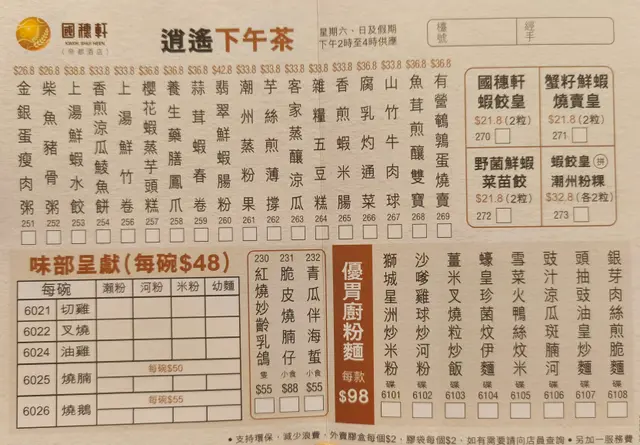 國穗軒
KWOK SHUI HEEN
(帝都酒店)
逍遙下午茶
星期六、日及假期
下午2時至4時供應
檯號
經手
$26.8 金銀蛋瘦肉粥 251
$26.8 柴魚豬骨粥 252
$38.8 上湯鮮蝦水餃 253
$33.8 香煎涼瓜鯪魚餅 254
$33.8 上湯鮮竹卷 255
$36.8 櫻花蝦蒸芋頭糕 256
$36.8 養生藥膳鳳爪 257
$36.8 蒜茸蝦春卷 258
$42.8 翡翠鮮蝦腸粉 259
$33.8 潮州蒸粉果 260
$33.8 芋絲煎薄撐 261
$33.8 客家蒸釀涼瓜 262
$33.8 雜糧五豆糕 263
$36.8 香煎蝦米腸 265
$36.8 腐乳灼通菜
$33.8 山竹牛肉球
$36.8 魚茸煎釀雙寶 268
$36.8 有營鵪鶉蛋燒賣 269
國穗軒
蝦餃皇
$21.8 (2粒)
270
蟹籽鮮蝦
燒賣皇
$21.8 (2粒)
271
野菌鮮蝦
菜苗餃
$21.8 (2粒)
272
蝦餃皇 拼
潮州粉粿
$32.8 (各2粒)
273
味部呈獻(每碗$48)
每碗 瀨粉 河粉 米粉 幼麵
6021 切雞
6022 叉燒
6024 油雞
每碗$50
6025 燒腩
每碗$55
6026 燒鵝
230 紅燒妙齡乳鴿 隻 $55
231 脆皮燒腩仔 小食 $88
232 青瓜伴海蜇 小食 $55
優胃廚粉麵
每款
$98
獅城星洲炒米粉 碟 6101
沙嗲雞球炒河粉 碟 6102
薑米叉燒粒炒飯 碟 6103
蠔皇珍菌炆伊麵 碟 6104
雪菜火鴨絲炆米 碟 6105
豉汁涼瓜斑腩河 碟 6106
頭抽豉油皇炒麵 碟 6107
銀芽肉絲煎脆麵 碟 6108
• 支持環保，減少浪費，外賣膠盒每個$2，膠袋每個$2，如有需要請向店員查詢 • 另加一服務費